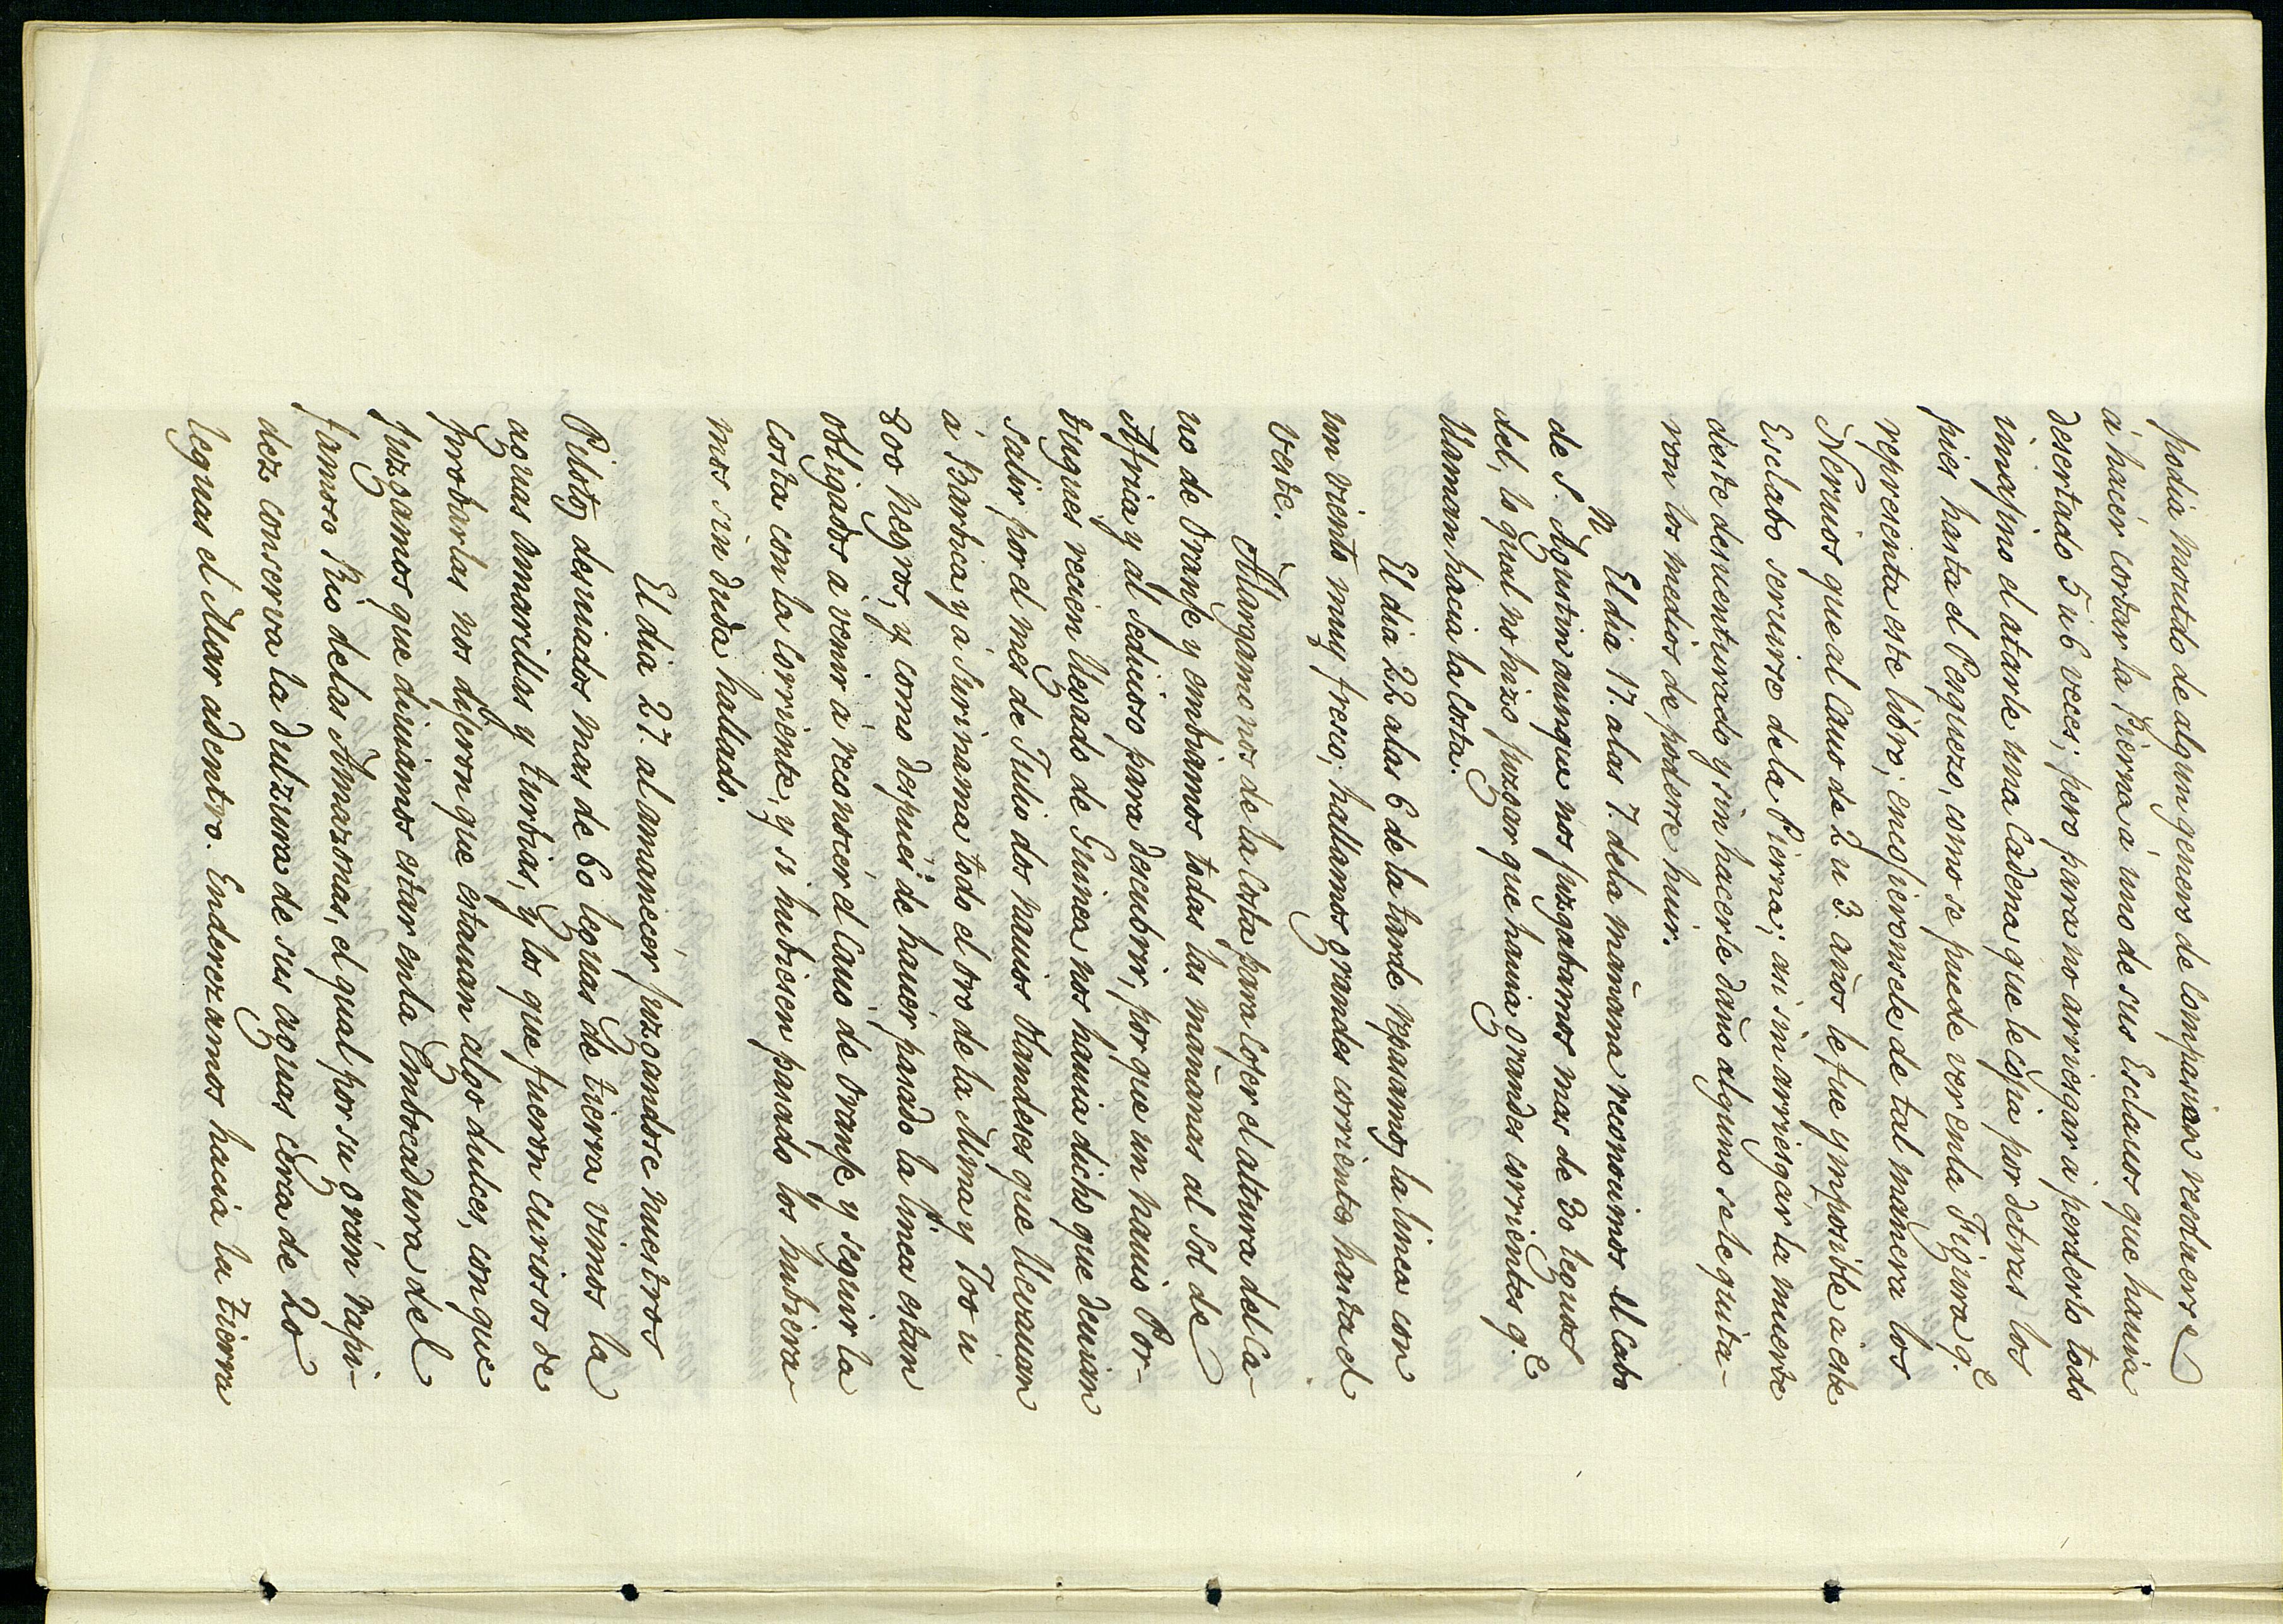 podia mouido de algun genero de Compasion resoluerse
á hacér cortar la Pierna á uno de sus Esclauos que hauia
desertado 5 ú 6 veces; pero para no arriesgar a perderlo todo
imajino el atarle una Cadena que le cojia por detras los
pies hasta el Pesquezo, como se puede ver enla Figura q.e
representa este libro; encojieronsele de tal manera los
Neruios que al Cauo de 2 u 3 años le fue ymposible a este
Esclabo seruirse dela Pierna; asi sin arriesgar la muerte
deste desuenturado y sin hacerle daño alguno se le quita-
ron los medios de poderse huir.
El dia 17. alas 7. dela mañana reconocimos el Cabo
de S.n Agustin aunque nos juzgabamos mas de 30 leguas
del, lo qual no hizo juzgar que hauia grandes corrientes q.e
llaman hacia la Costa.
El dia 22 alas 6 de la tarde repasamos la linea con
un viento muy fresco; hallamos grandes corrientes hasta el
veste.
Alargamonos de la Costa para Cojer el altura del Ca-
uo de Oranje y embiamos todas las mañanas al Sol de
Africa y al Sedicioso para descubrir, porque un nauio Por-
tugues recien llegado de Guinea nos hauia dicho que deuian
salir por el mes de Julio dos nauios Olandeses que lleuauan
á Barbica y á Surinama todo el oro de la Mina y 700 u
800 negros, y como despues de hauér pasado la linea estan
obligados a venir á reconocér el Cauo de Oranje y seguir la
costa con la Corriente, y si hubiesen pasado los hubiera-
mos sin duda hallado.
El dia 27. al amanecér juzgandose nuestros
Pilotos desuiados mas de 60 leguas de tierra vimos las
aguas amarillas y turbias, y los que fueron curiosos de
probarlas nos dijeron que estauan algo dulces, con que
juzgamos que deuiamos estar enla Embocadura del
famoso Rio delas Amazonas, el qual por su gran rapi-
dez conserva la dulzura de sus aguas cerca de 20
leguas el Mar adentro. Enderezamos hacia la tierra